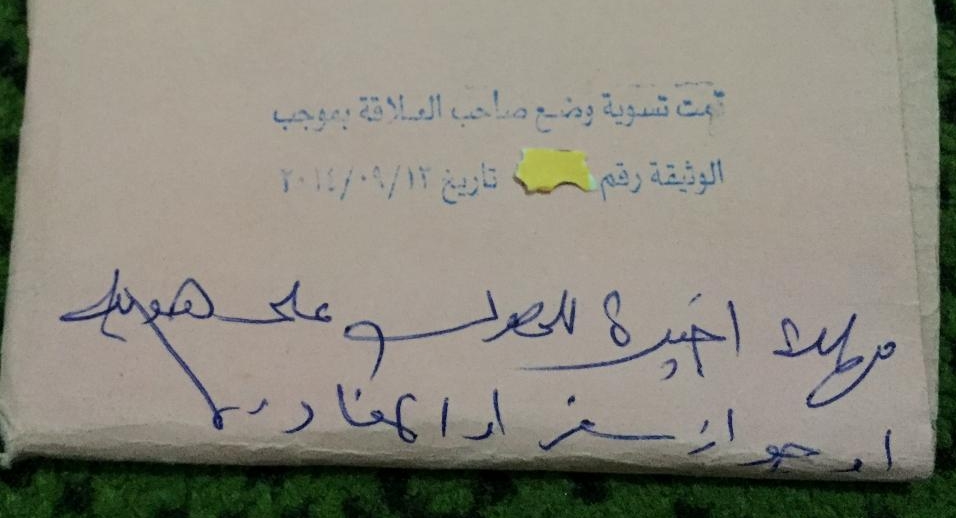 تمت تسوية وضع صاحب العلاقة بموجب
الوثيقة رقم تاريخ ٢٠١٤/٠٩/١٢
مهلة اخيرة للحصول على هوية
او جواز سفر او المغادرة